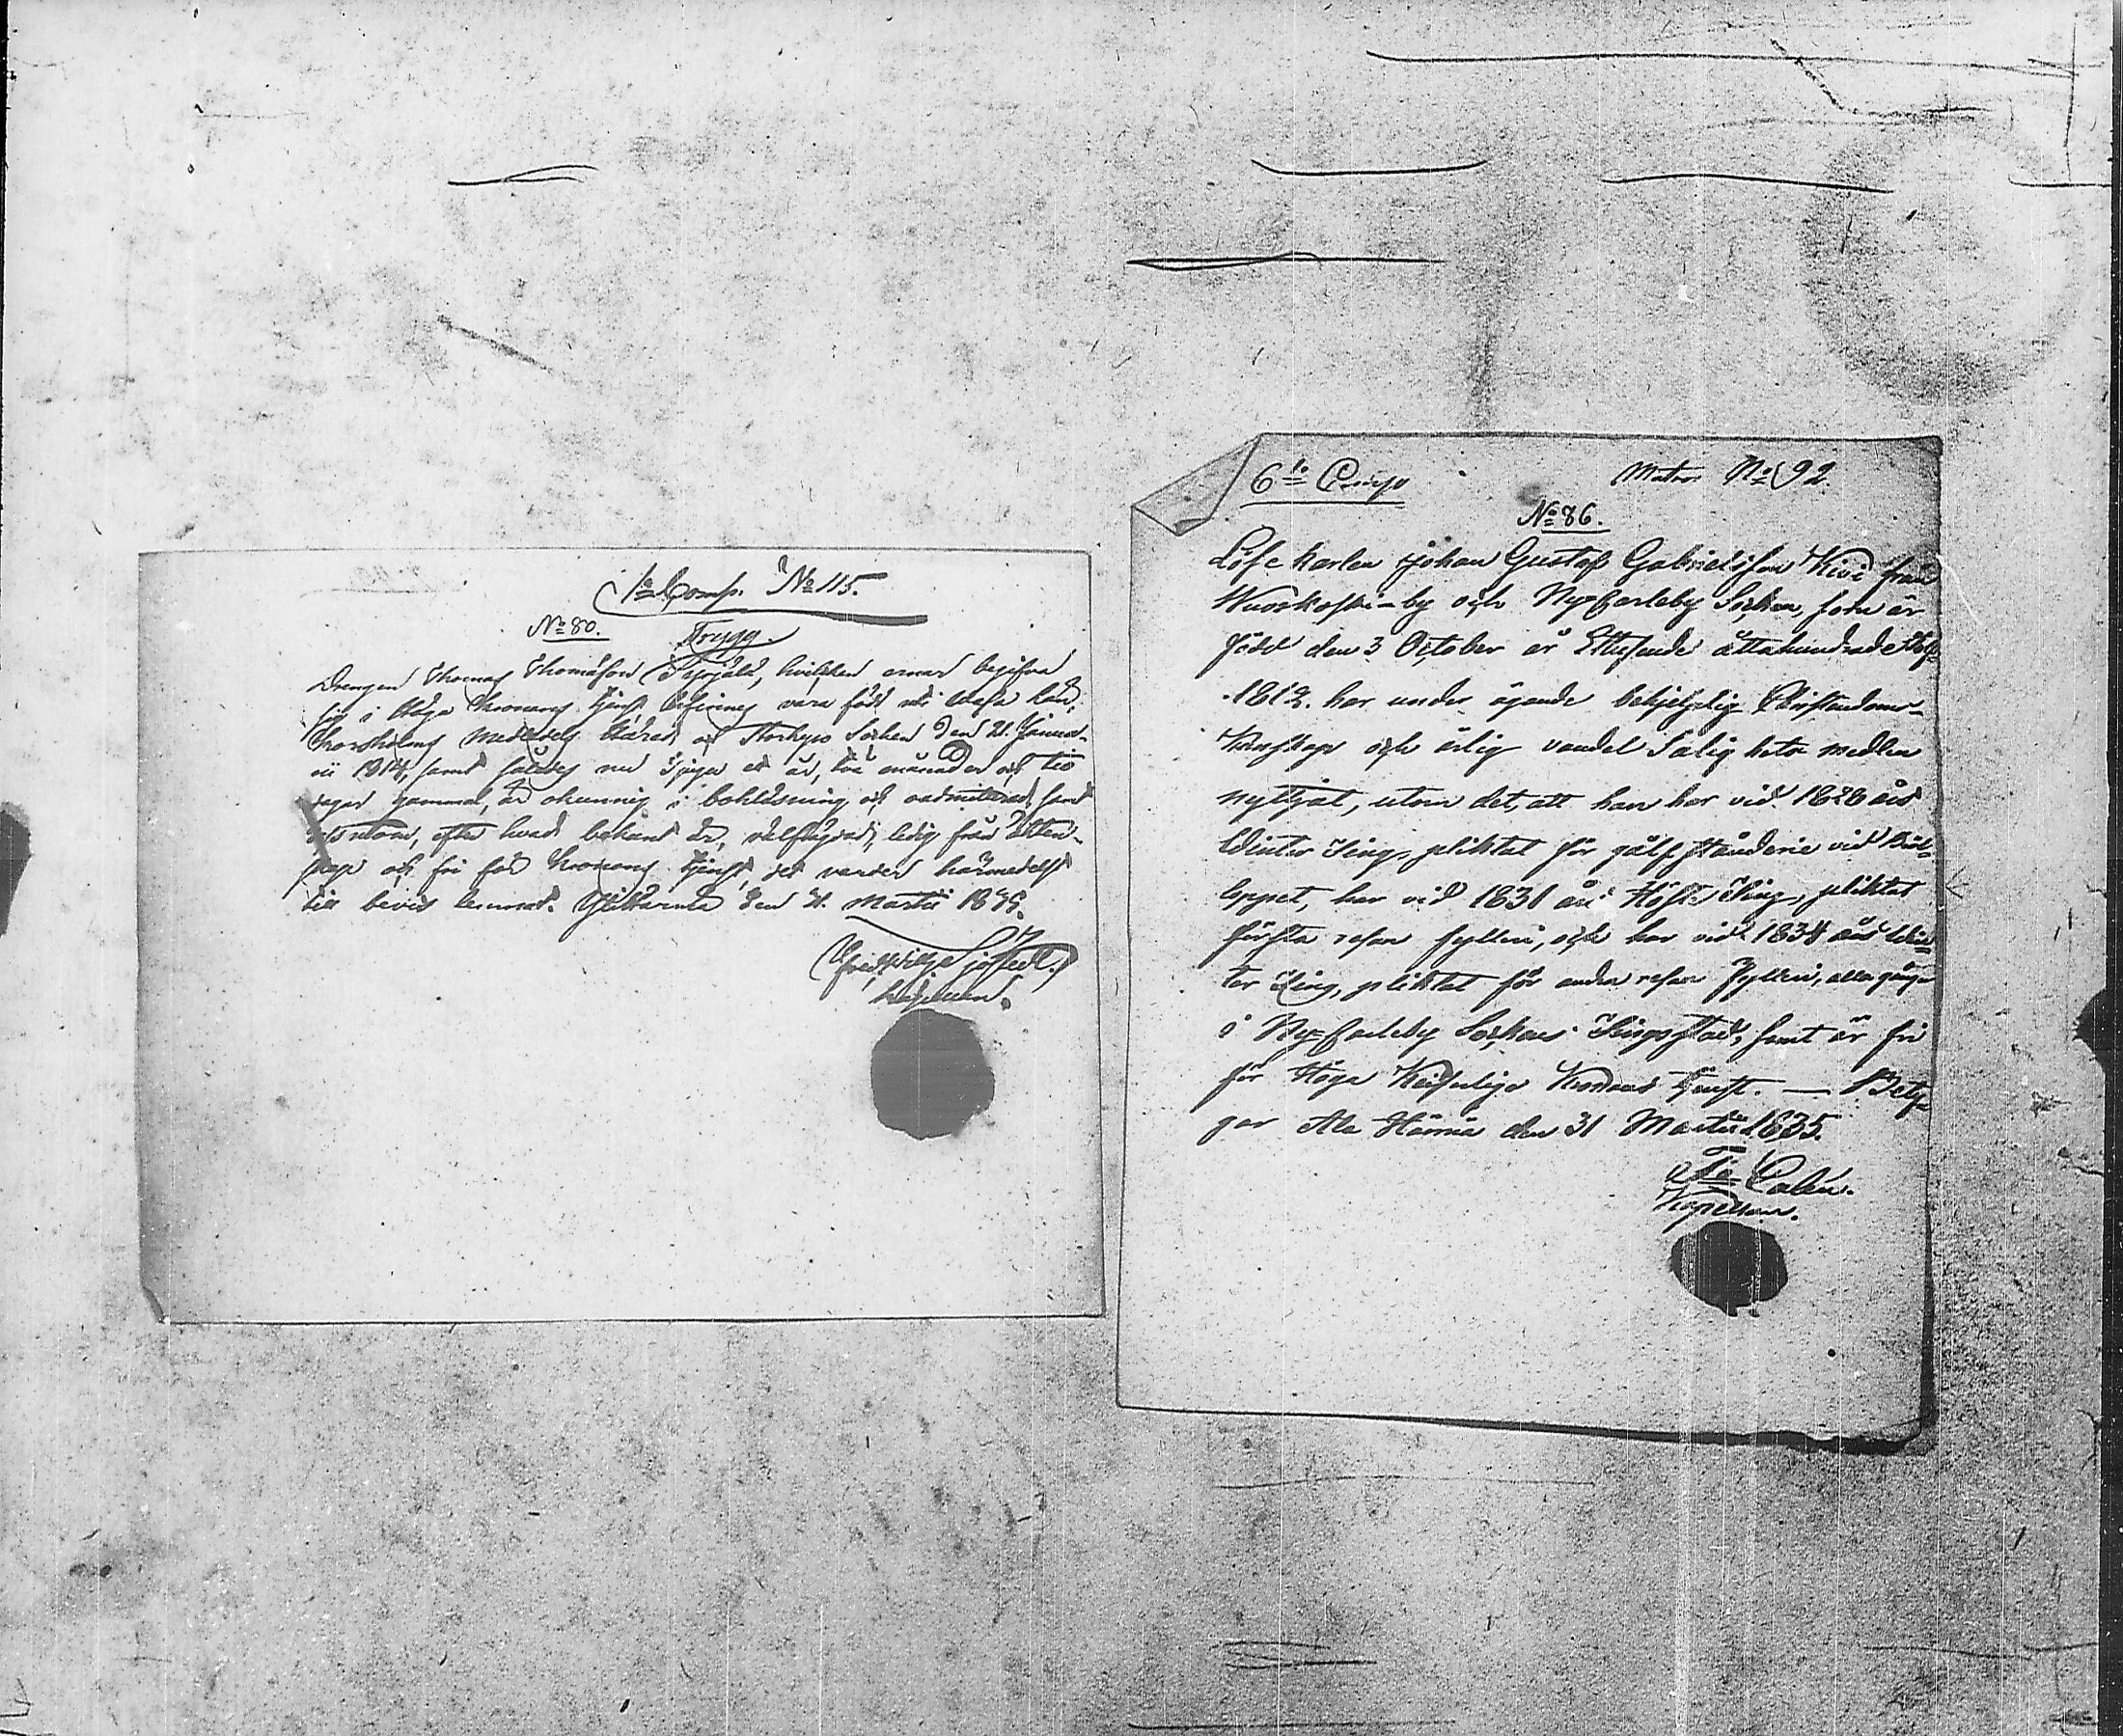 1:a Comp. No 115.
No 80. Trygg.
Drengen Thomas Thomasson, hvilken ernar begifva
sig i Höga Kronans tjenst befinnes vara född uti Wasa Län,
Korsholms Medledels Härad och Storkyro Socken den 21. Janua-
rii 1814, samt således nu Tjugu ett år, två månader och tio
dagar gammal, är okunnig i boklåsning och samt
efter hvad bekant är, välfrägdad, ledig från ägten-
skap och fri för Kronans tjenst, det varder härmedelst
till bevis lemnat. den 31. Martii 1835.
Kapellan.
6:te Comp Matr. No 92
No 86.
Löfe karlen Johan Gustaf Gabrielsson Kivi från
Wuoskoski-by och Ny-Carleby Socken, som är
född den 3 October år Ettusende åttahundrade Tolf
1812. har under ägande behjelpelig Christendoms-
kunskap och ärlig vandel Salighets medlen
nyttjat, utom det, att han har vid 1828 års
Winter Ting, pliktat för vid
loppet, har vid 1831 års Höste Ting, pliktat
första resan fylleri, och har vid 1834 års Win-
ter Ting, pliktat för andra resan fylleri, alla gånger
i Ny-Carleby Sockens Tingsstad, samt är fri
för Höga Keiserliga Kronans tjenst. — Bety-
gar Ala Härmä den 31 Martii 1835.
Calén.
Kapellan.